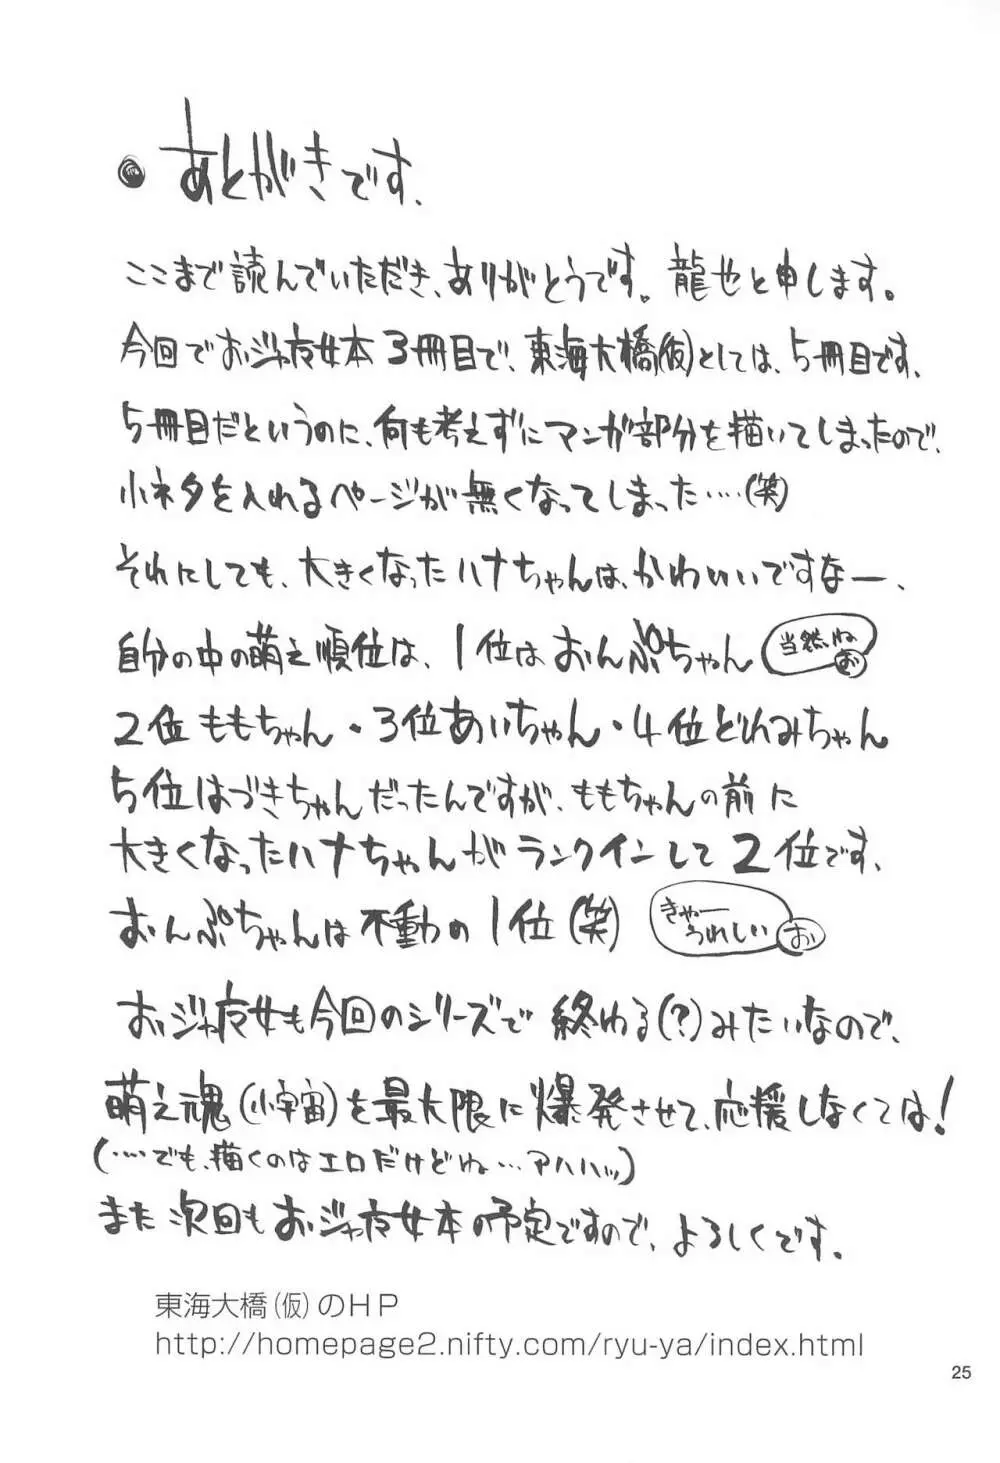 あとがきです.
ここまで読んでいただき、ありがとうです。龍也と申します。
今回でおジャ魔女本3冊目で、東海大橋(仮)としては、5冊目です、
5冊目だというのに、何も考えずにマンガ部分を描いてしまったので、
小ネタを入れるページが無くなってしまった‥‥(笑)
それにしても、大きくなったハナちゃんは、かわいいですなー、
自分の中の萌え順位は、1位はおんぷちゃん
当然ね
お
2位ももちゃん・3位あいちゃん・4位どれみちゃん
5位はづきちゃんだったんですが、ももちゃんの前に
大きくなったハナちゃんがランクインして2位です、
おんぷちゃんは不動の1位(笑)
きゃー
うれしい
お
おジャ魔女も今回のシリーズで終わる(?)みたいなので、
萌え魂(小宇宙)を最大限に爆発させて、応援しなくては!
(‥‥でも、描くのはエロだけどね…アハハッ)
また次回もおジャ魔女本の予定ですので、よろしくです。
東海大橋(仮)のHP
http://homepage2.nifty.com/ryu-ya/index.html
25